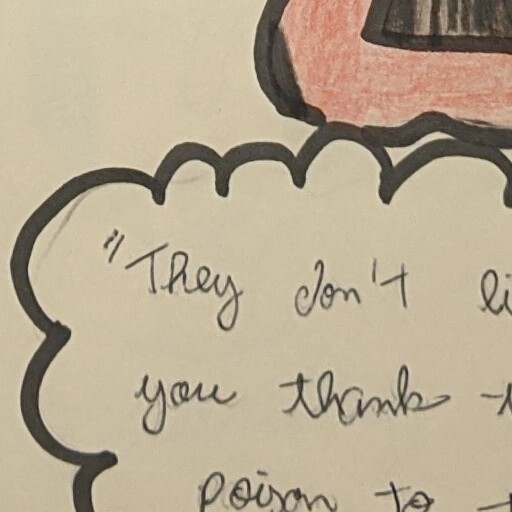 "They don't li
you thank
poison to